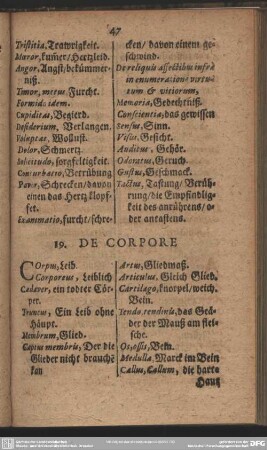 47
Tristitia, Trawrigkeit.
Mæror, kum̃er/Hertzleid.
Angor, Angst/bekümmer-
niß.
Timor, metus Furcht.
Formido idem.
Cupiditas, Begierd.
Desiderium, Verlangen.
Voluptas, Wollust.
Dolor, Schmertz.
Solicitudo, sorgfeltigkeit.
Conturbatio, Betrübung
Pavor, Schrecken/davon
einen das Hertz klopf-
fet.
Exanimatio, furcht/schre-
cken/ davon einem ge-
schwind.
De reliquis affectibus infrà
in enumeratione virtu-
tum & vitiorum,
Memoria, Gedechtnüß.
Conscientia, das gewissen
Sensus, Sinn.
Visus, Gesicht.
Auditus, Gehör.
Odoratus, Geruch.
Gustus, Geschmack.
Tactus, Tastung/ Berüh-
rung/die Empfindlig-
keit des anrührens/o-
der antastens.
19. DE CORPORE
Corpus, Leib.
Corporeus, Leiblich
Cadaver, ein todter Cör-
per.
Truncus, Ein Leib ohne
Häupt.
Membrum, Glied.
Captus membris, Der die
Glieder nicht brauchē
kan
Artus, Gliedmaß.
Articulus, Gleich Glied.
Cartilago, knorpel/weich.
Bein.
Tendo, tendinis, das Geä-
der der Mauß am flei-
sche.
Os, ossis, Bein.
Medulla, Marck im Bein
Callus, Callum, die harte
Haut